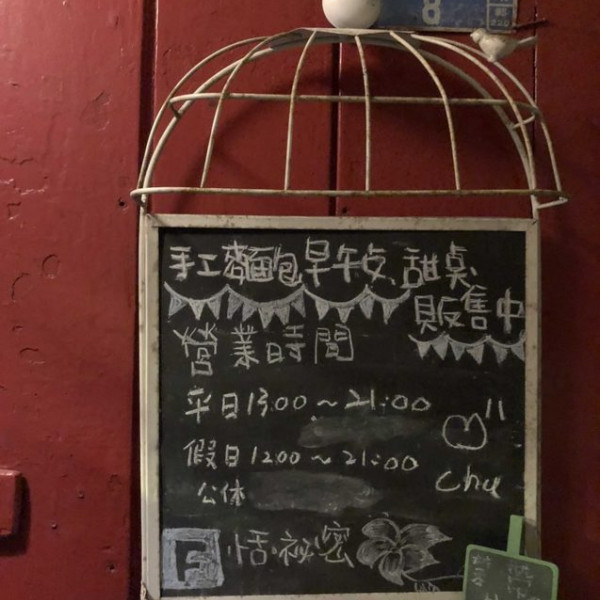 8
手工麵包早午餐、甜點、
販售中
營業時間
平日13:00～21:00
假日1200～21:00
公休
chu
F 恬.祕密